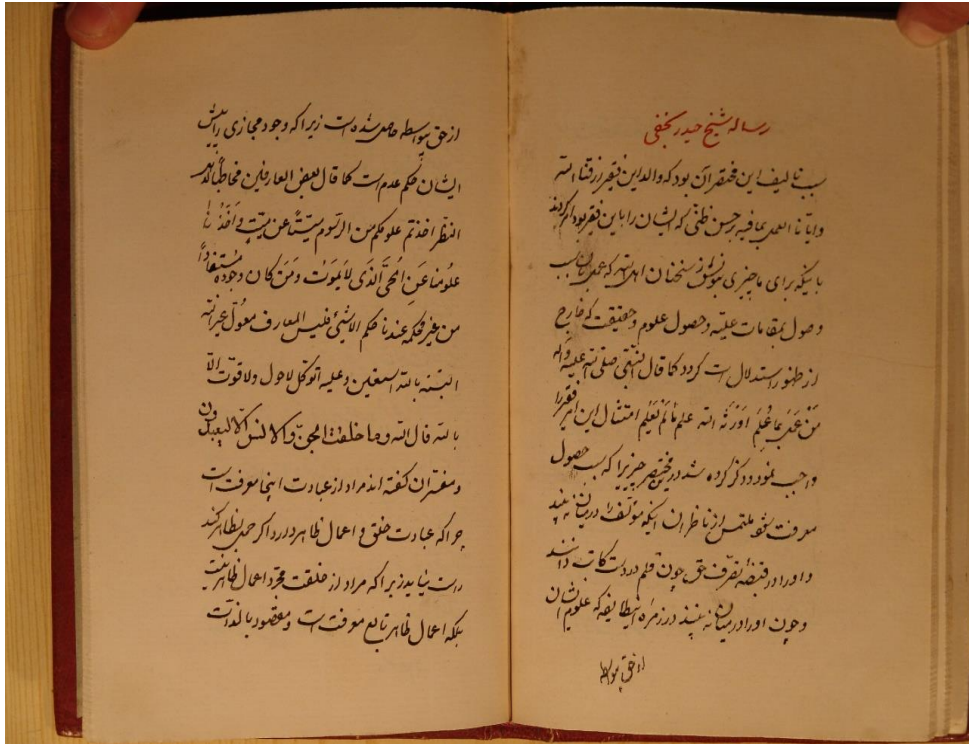 رساله شیخ حیدر نجفی
سبب تالیف این مختصر آن بود که والد این فقیر رزقنا الله
وایّانا العمل بما فیه بر حسن ظنّی که ایشان را باین فقیر بود امر کردند
باینکه برای ما چیزی بنویس از سخنان اهل الله که عمل بآن سبب
وصول بمقامات علیّه و حصول علوم و حقیقت که خارج
از طهور استدلال است کردد کما قال النّبی صلّی الله علیه واله
مَنْ عَمِلَ بما عُلِمَ اَوْرَثَهُ الله علم مالَمْ یَعْلَم امتثال این امر فقیر را
واجب نمود و ذکر کرده شد درین مختصر چیزیرا که سبب حصول
معرفت شود ملتمس از ناظران اینکه مؤلّف را در میان نه بینند
و اورا در قبضهٔ تصرّف حق چون قلم در دست کاتب دانند
و چون اورا در میان نه بینند در زمرهٔ این طایفه که علوم ایشان
از حق بیواسطه
از حق بیواسطه حاصل شده است زیرا که وجود مجازی را پیش
ایشان حکم عدم است کما قال بعض العارفین مخاطباً لاهل
النظر اخذتم علومکم من الرّسوم میّتٌ عن میّتٍ و اَخَذْنا
علومنا عَنِ الحیّ الّذی لا یَمُوت وَ مَنْ کان وجوده مُستفاداً
من غیر فحکمه عندنا حکم الاشیٔ فلیس للعارف معوّل غیر الله
البتّه بالله استعین و علیه اتوکّل لا حول ولا قوّت الّا
بالله قال الله و ما خلقت الجنّ والانس الّا لیعبدون
و مفسّران کفته اند مراد از عبادت اینجا معرفت است
چرا که عبادت خلق و اعمال ظاهر دارد اکر حمل بظاهر کند
راست نیاید زیرا که مراد از خلقت مجرّد اعمال ظاهر نیست
بلکه اعمال ظاهر تابع معرفت است و مقصود بالذّات